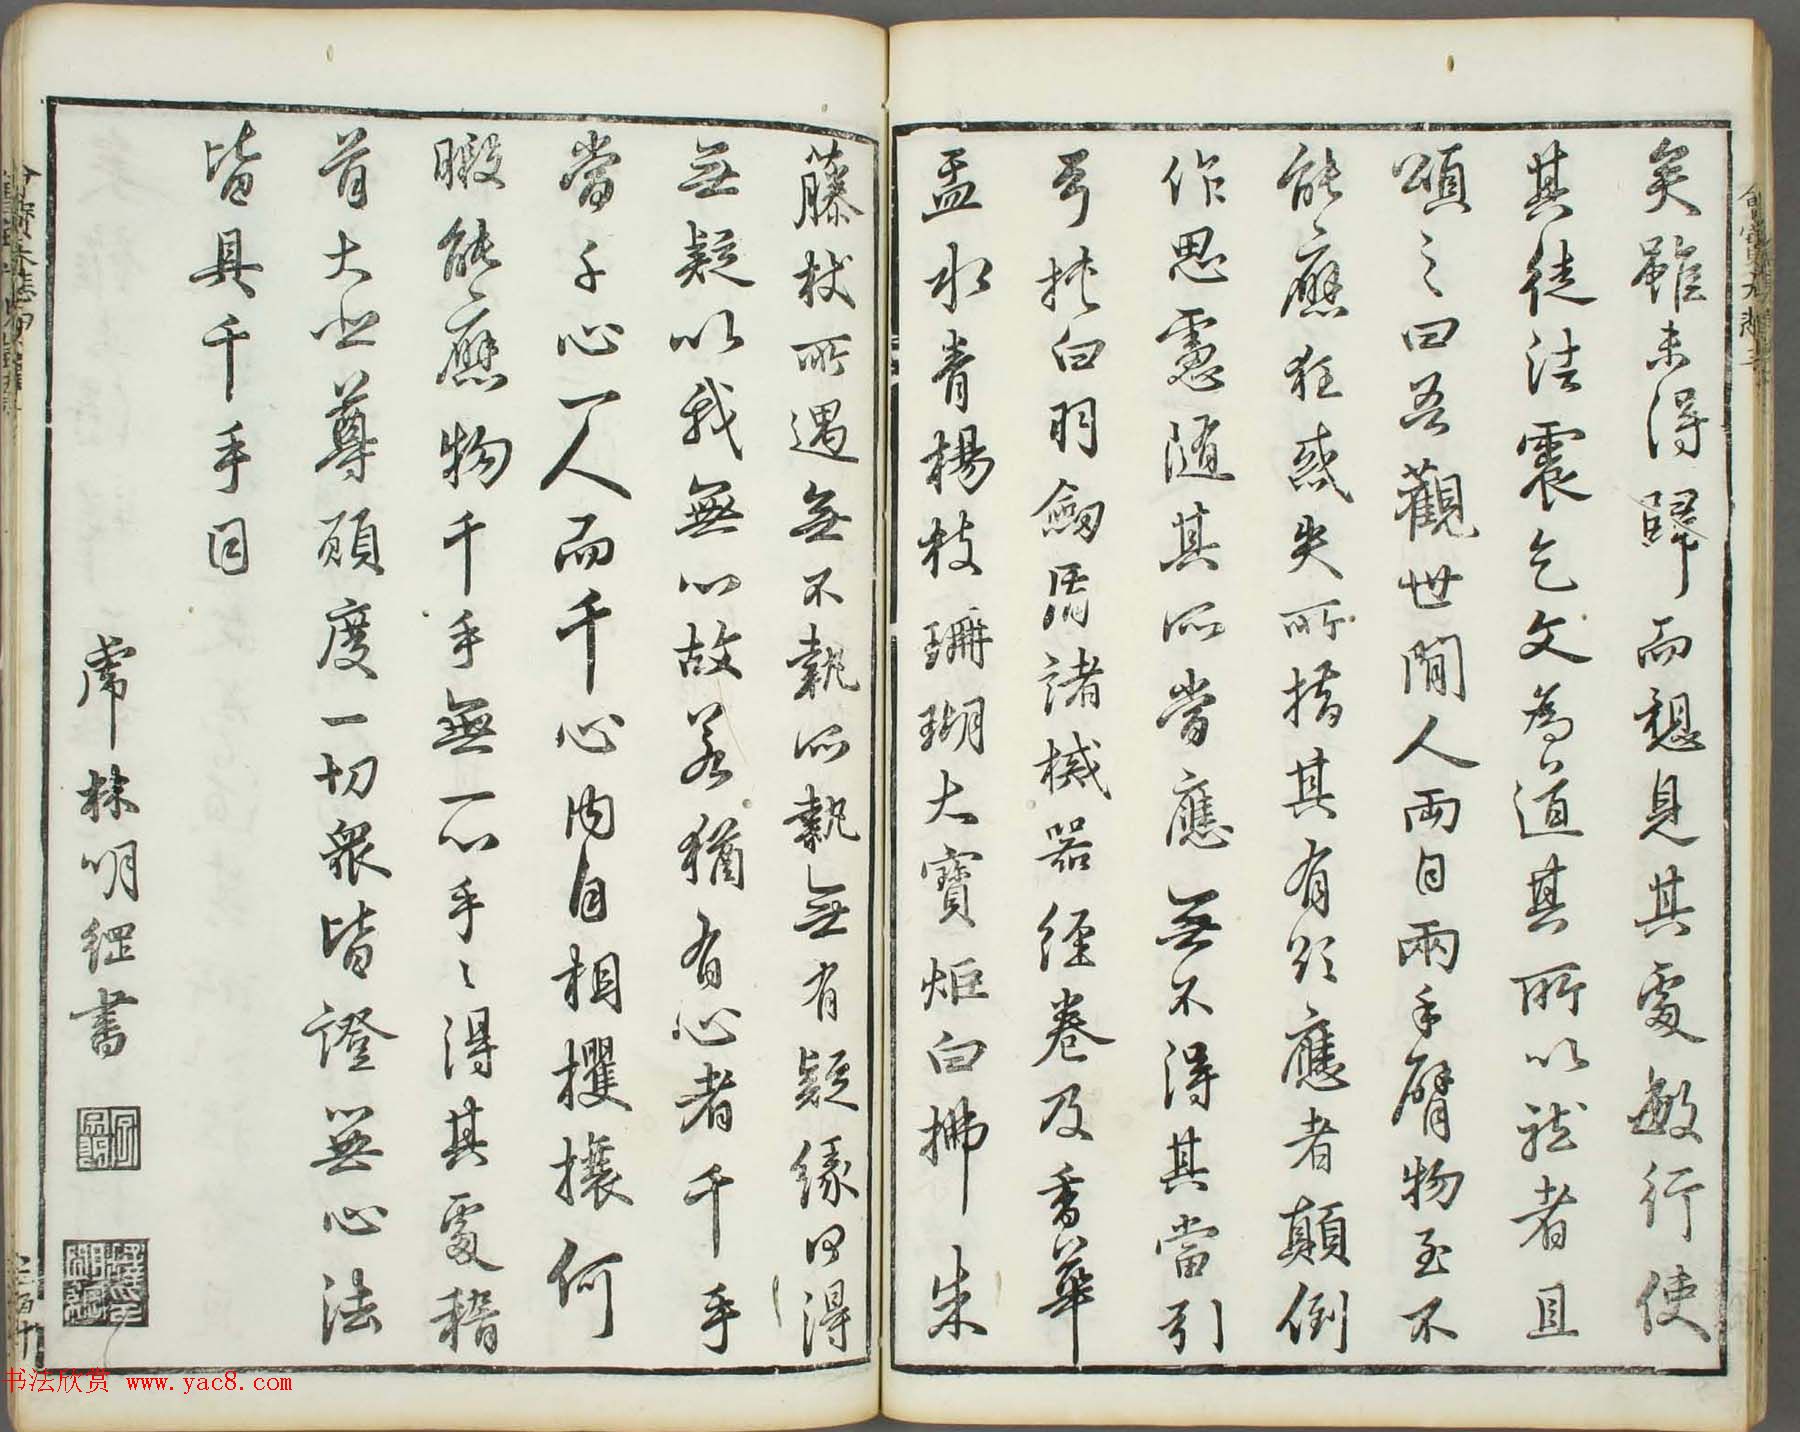 矣雖未得歸而想見其處敏行使
其徒法震乞文為道其所以然者且
頌之曰吾觀世間人兩目兩手臂物至不
能應狂惑失所措其有欲應者顛倒
作思慮隨其所當應無不得其當引
弓挾白羽劍盾諸械器經卷及香華
盂水青楊枝珊瑚大寶炬白拂朱
藤杖所遇無不執所執無有疑緣何得
無疑以我無心故若猶有心者千手
當千心一人而千心內自相攫攘何
暇能應物千手無一心手〻得其處稽
首大悲尊願度一切衆皆證無心法
皆具千手目
虎林明綱書
书法欣赏 www.yac8.com